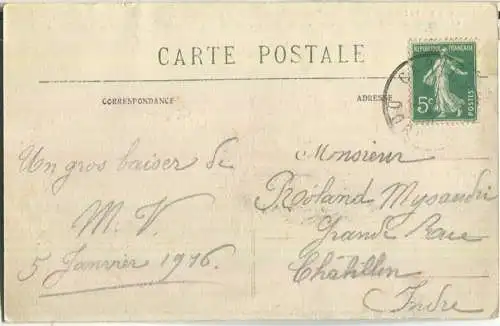 CARTE POSTALE
CORRESPONDANCE
ADRESSE
REPUBLIQUE FRANÇAISE
5c
POSTES
Un gros baiser de
M. V.
5 Janvier 1916.
Monsieur
Roland
Grande Rue
Châtillon
Indre